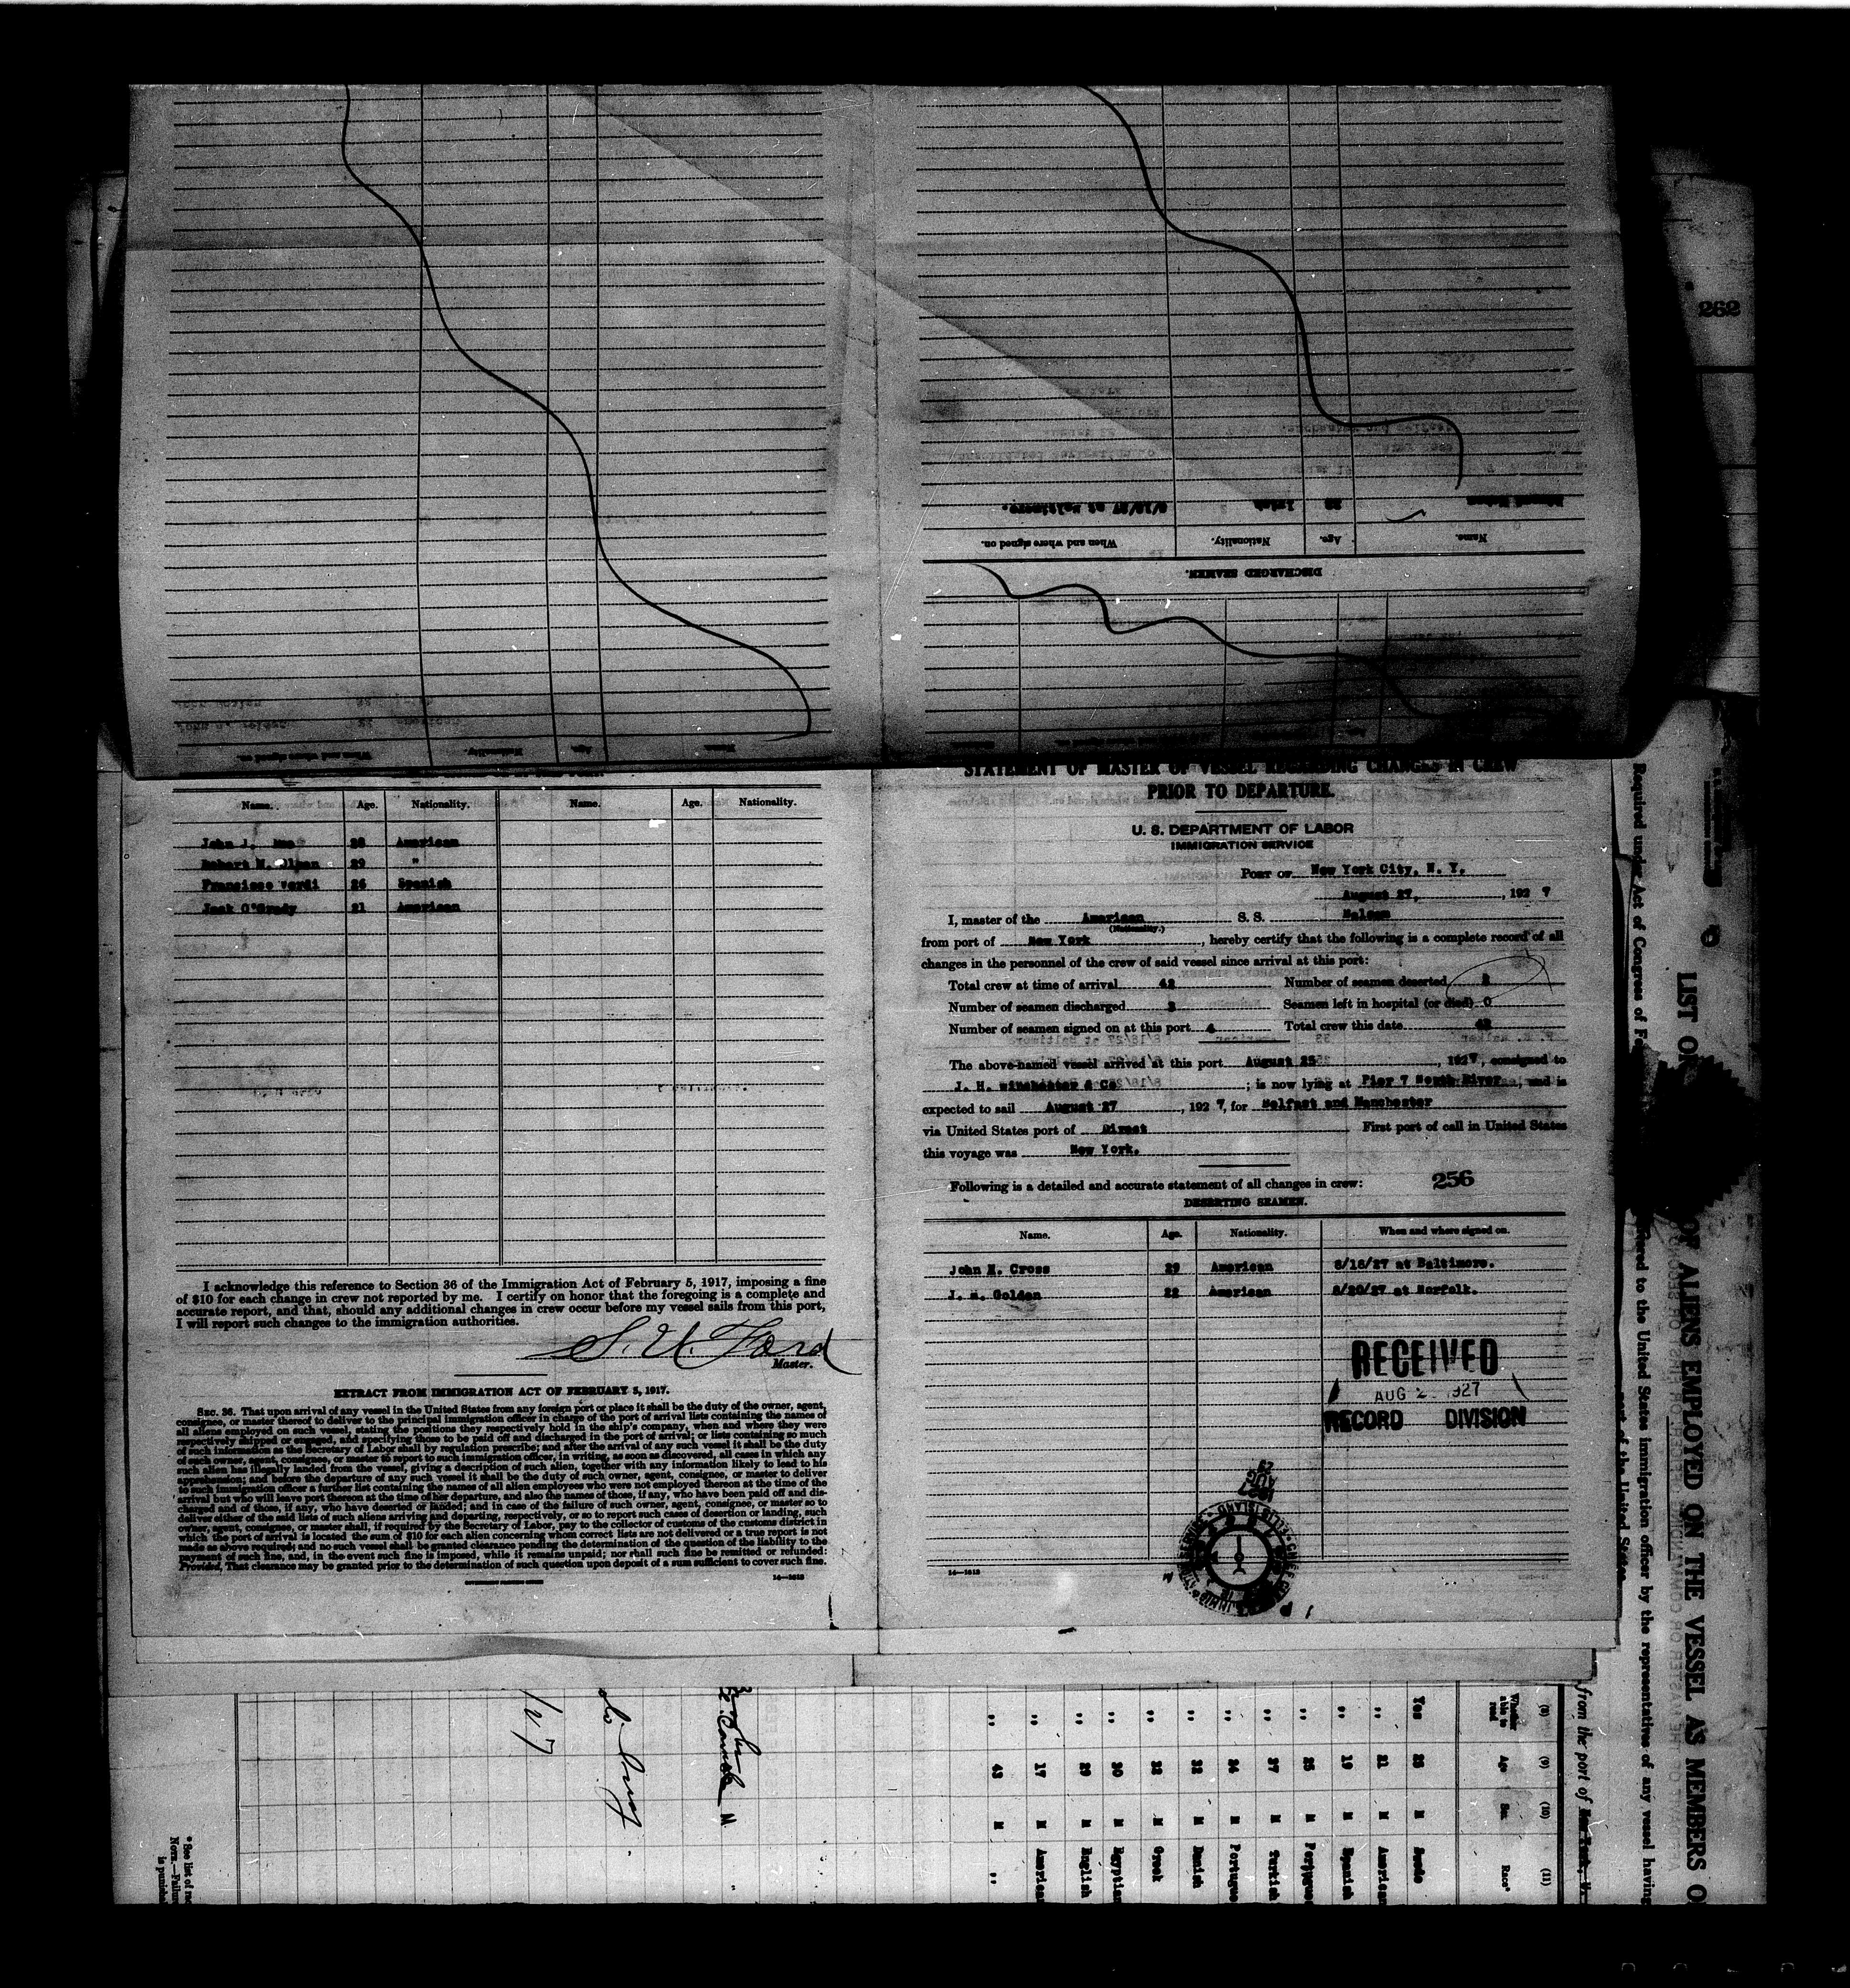 262
9/18/27 at Baltimore. Irish
When and where signed on. Nationality. Age. Name.
DISCHARGED SEAMEN.
Name. Age. Nationality. Name. Age. Nationality.
John J. 28 American
Robert 29 "
Francisco Verdi 26 Spanish
Jack O'Grady 21 American
I acknowledge this reference to Section 36 of the Immigration Act of February 5, 1917, imposing a fine
of $10 for each change in crew not reported by me. I certify on honor that the foregoing is a complete and
accurate report, and that, should any additional changes in crew occur before my vessel sails from this port,
I will report such changes to the immigration authorities.
Ford
Master.
EXTRACT FROM IMMIGRATION ACT OF FEBRUARY 5, 1917.
SEC. 36. That upon arrival of any vessel in the United States from any foreign port or place it shall be the duty of the owner, agent,
consignee, or master thereof to deliver to the principal immigration officer in charge of the port of arrival lists containing the names of
all aliens employed on such vessel, stating the positions they respectively hold in the ship's company, when and where they were
respectively shipped or engaged, and specifying those to be paid off and discharged in the port of arrival; or lists containing so much
of such information as the Secretary of Labor shall by regulation prescribe; and after the arrival of any such vessel it shall be the duty
of such owner, agent, consignee, or master to report to such immigration officer, in writing, as soon as discovered, all cases in which any
such alien has illegally landed from the vessel, giving a description of such alien, together with any information likely to lead to his
apprehension; and before the departure of any such vessel it shall be the duty of such owner, agent, consignee, or master to deliver
to such immigration officer a further list containing the names of all alien employees who were not employed thereon at the time of the
arrival but who will leave port thereon at the time of her departure, and also the names of those, if any, who have been paid off and dis-
charged and of those, if any, who have deserted or landed; and in case of the failure of such owner, agent, consignee, or master so to
deliver either of the said lists of such aliens arriving and departing, respectively, or so to report such cases of desertion or landing, such
owner, agent, consignee, or master shall, if required by the Secretary of Labor, pay to the collector of customs of the customs district in
which the port of arrival is located the sum of $10 for each alien concerning whom correct lists are not delivered or a true report is not
made as above required; and no such vessel shall be granted clearance pending the determination of the question of the liability to the
payment of such fine, and, in the event such fine is imposed, while it remains unpaid; nor shall such fine be remitted or refunded:
Provided, That clearance may be granted prior to the determination of such question upon deposit of a sum sufficient to cover such fine.
GOVERNMENT PRINTING OFFICE 14—1613
STATEMENT OF MASTER OF VESSEL REGARDING CHANGES IN CREW
PRIOR TO DEPARTURE.
U. S. DEPARTMENT OF LABOR
IMMIGRATION SERVICE
PORT OF New York City, N. Y.
August 27, , 192 7
I, master of the American S. S.
(Nationality.)
from port of New York , hereby certify that the following is a complete record of all
changes in the personnel of the crew of said vessel since arrival at this port:
Total crew at time of arrival 42 Number of seamen deserted
Number of seamen discharged Seamen left in hospital (or died) 0
Number of seamen signed on at this port 4 Total crew this date
The above-named vessel arrived at this port August 25 , 1927, consigned to
J. H. Winchester & Co ; is now lying at Pier 7 North River , and is
expected to sail August 27 , 192 7, for Belfast and Manchester
via United States port of Direct First port of call in United States
this voyage was New York.
Following is a detailed and accurate statement of all changes in crew: 256
DESERTING SEAMEN.
Name. Age. Nationality. When and where signed on.
John E. Cross 29 American 8/18/27 at Baltimore.
Golden 22 American 8/20/27 at Norfolk.
RECEIVED
AUG 1927
RECORD DIVISION
14—1613
LIST OF ALIENS EMPLOYED ON THE VESSEL AS MEMBERS O
Required under Act of Congress of Fe
ered to the United States immigration officer by the representatives of any vessel having
port of the United States
from the port of New York, U.
(8) (9) (10) (11)
Whether able to read Age Sex Race*
Yes M
" 21 M American
" 19 M Spanish
" 25 M Portugues
" 27 M Turkish
" M Portugues
" 32 M Danish
" M Greek
" 30 M Egyptian
" 29 M English
" 17 M American
" 43 M "
127
* See list of rac
NOTE.—Failure
is punish